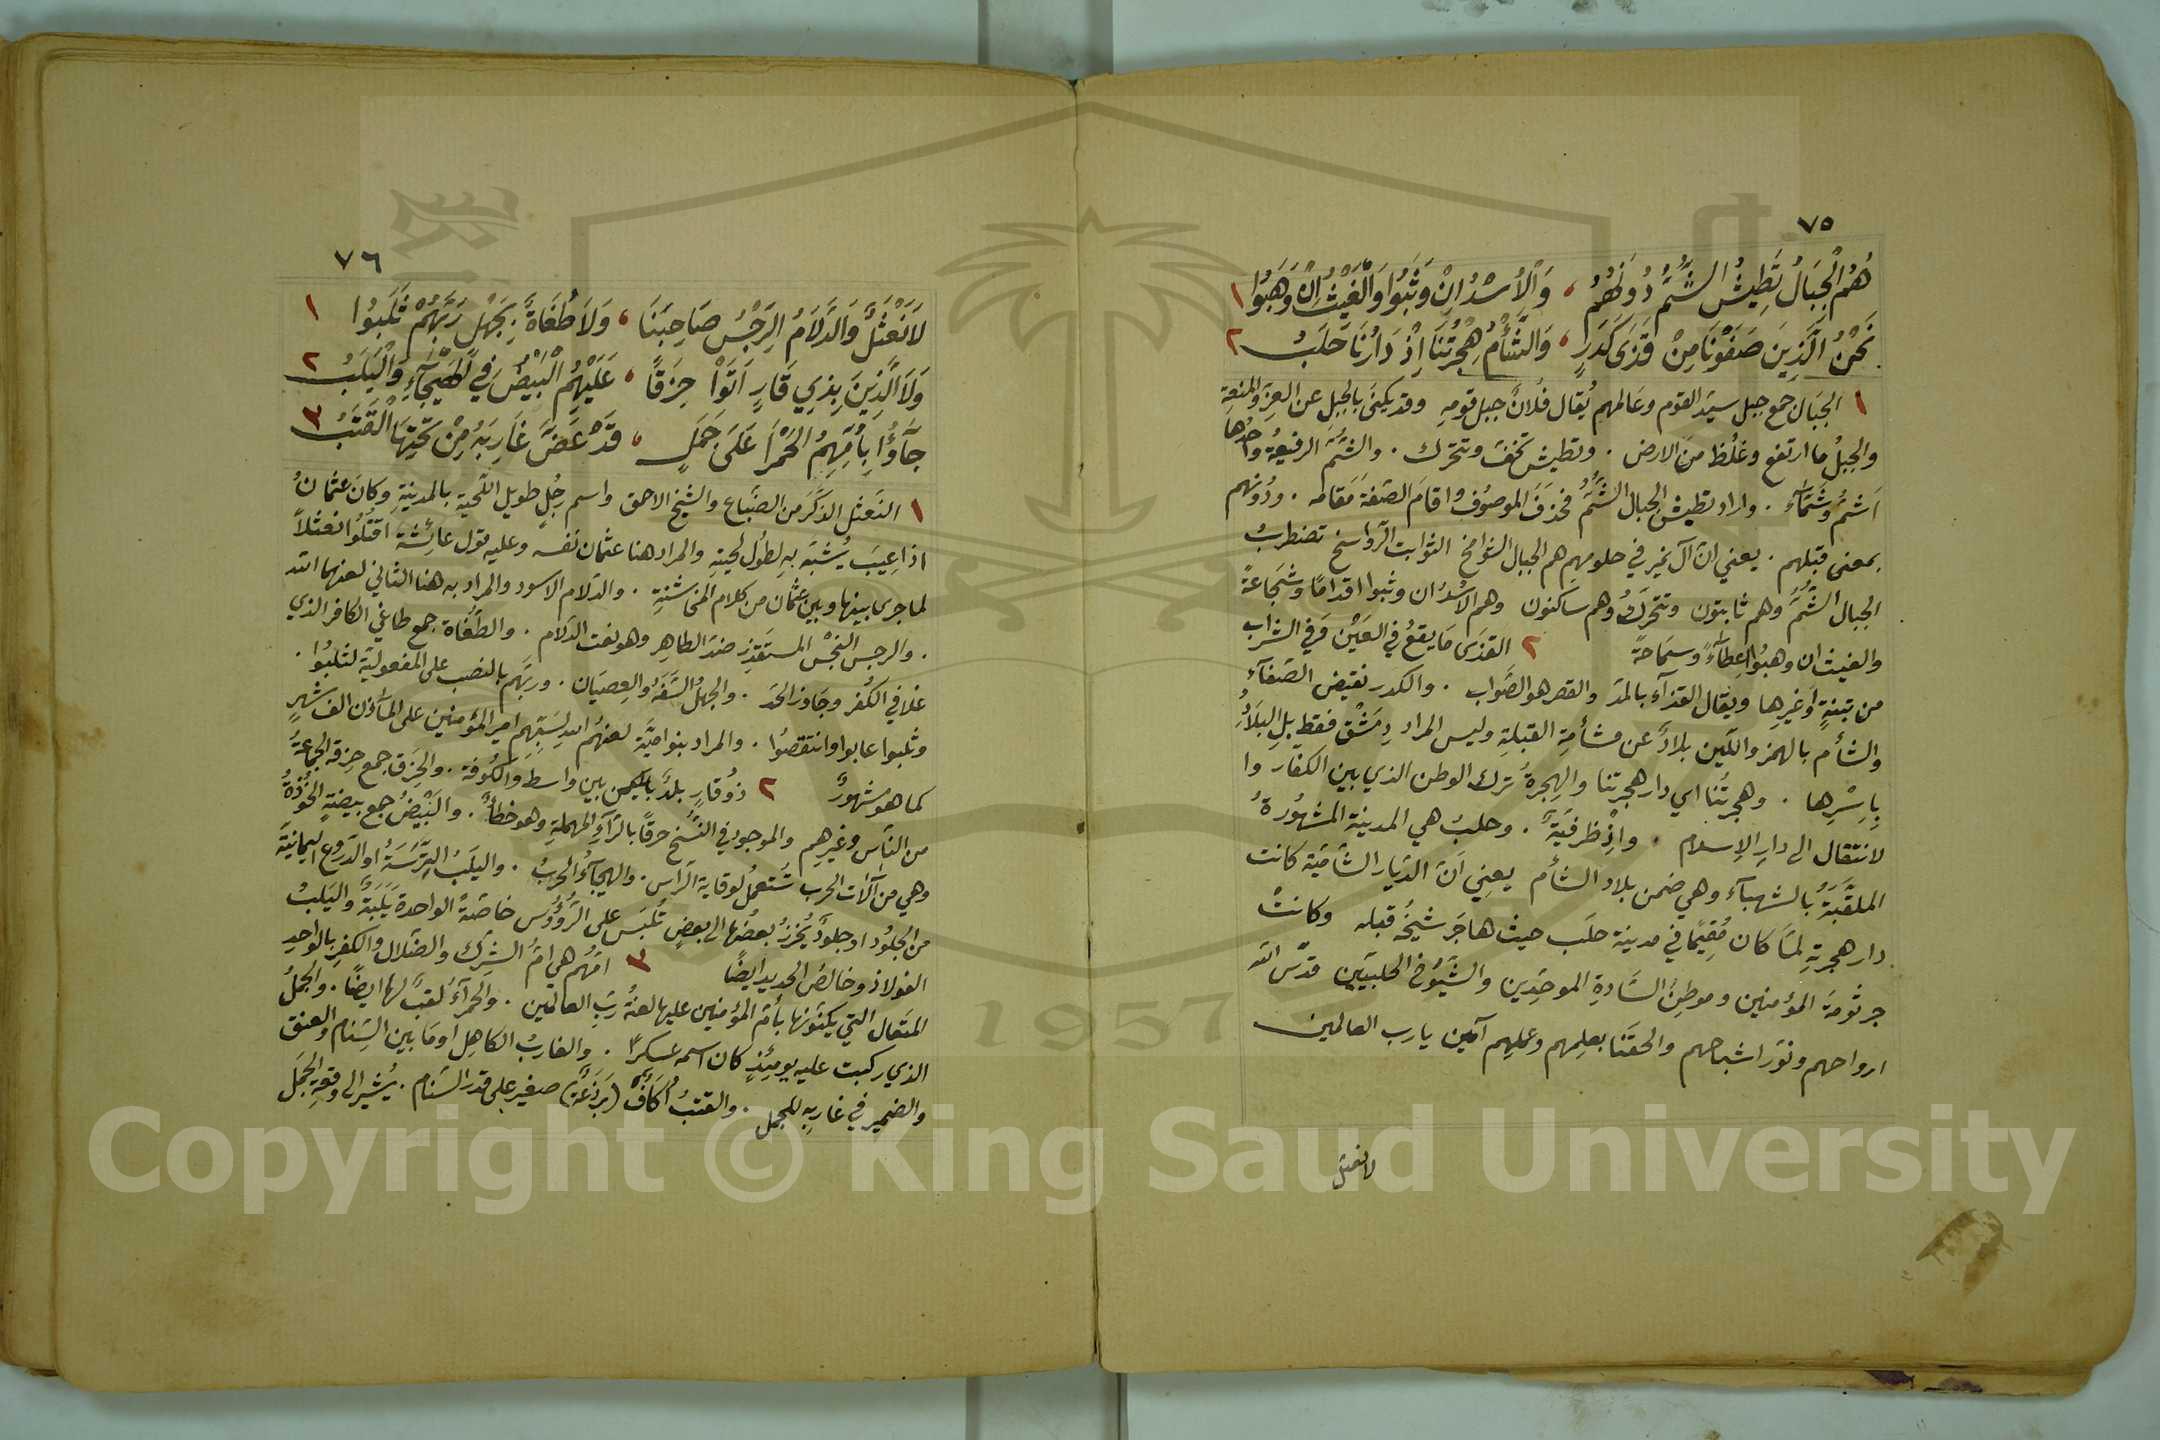 ٧٥
هُمُ الْجِبَالُ تَطِيشُ الشُّمُّ دُونَهُمُ ، وَالْاُسْدُ اِنْ وَثَبُوا وَالْغَيْثُ اِنْ وَهَبُوا ١
نَحْنُ الَّذِينَ صَفَوْنَا مِنْ قَذَى كَدَرٍ ، وَالشَّأْمُ هِجْرَتُنَا اِذْ دَارُنَا حَلَبُ ٢
١ الجِبَال جمع جبل سيد القوم وعَالمهم يُقال فُلانٌ جبل قومهِ وقد يكنَى بالجبل عن العِزَّ والمنعةِ
والجبلُ ما ارتفع وغلُظ منَ الارض . وتطيش تخفّ وتتحّرك . والشُّمّ الرفيعُة واحدُها
اَشَمُّ وشَمَّاءُ . واراد تطيش الجبال الشُّمُّ فحذفَ الموصُوف واقامَ الصّفةَ مَقامه . ودُونهم
بمعنى قبَلهم . يعني انّ آل نمير في حلومهم هم الجبال الشوامخ الثوابت الرّواسخ تضطربُ
الجبالُ الشُّمُّ وهم ثابتون وتتحركُ وهم ساكنون وهم الاُسْدُ ان وثبوا اقدامًا وشجَاعةً
والغيث ان وهبُوا اعِطاءً وسمَاحةً ٢ القذى مَا يقعُ في العَيْن وَفي الشراب
من تبنةٍ اَو غيرِها ويقال القذآء بالمدّ والقصر هو الصَّواب . والكدر نقيض الصَّفآء
والشأم بالهمز واللّين بلادٌ عن مشأمةِ القبلةِ وليس المراد دِمَشْق فقط بلِ البلادُ
باِسْرِها . وهجرتُنا اي دار هجرتنا والهِجرةُ ترك الوطن الذي بين الكفار وا
لانتقال الى دارِ الاِسلام . واِذْ ظرفيَّةٌ . وحلبُ هي المدينة المشهُورةُ
الملقَّبَةُ بالشهبآء وهي ضمن بلاد الشأم يعنِي اَنّ الدّيار الشّاميّة كانت
دار هجرتهِ لمّا كان مُقِيمًا في مدينة حلَب حيث هاجَر شيخُه قبله وكانتْ
جرثومَة المؤمنين وموطِنُ السَّادةِ الموحّدِين والشيُّوخ الحلبيّين قدّسَ الله
ارواحهم ونوّر اشباحهم والحقَنا بعلِمهم وعملِهم آمين يارب العالمين
لا نعثل
٧٦
لَا نَعْثَلٌ وَالدَّلَامُ الرِّجْسُ صَاحِبُنَا ، وَلَا طُغَاةٌ بِجَهْلٍ رَبَّهُمْ ثَلَبُوا ١
وَلَا الَّذِينَ بِذِي قَارٍ اَتَوْا حِزَقًا ، عَلَيْهُمِ الْبَيْضُ فِي الْهَيْجَآءِ وَالْيَلَبُ ٢
جَآؤُا بِاُمِّهِمُ الحَمْرَا عَلَى جَمَلٍ ، قَدْ عَضَّ غَارِبَهُ مِنْ تَحْتِهَا الْقَتَبُ ٣
١ النَعثل الذكر من الضباع والشيخ الاحمق واسم رجُلٍ طويل اللّحية بالمدينةِ وكانَ عثمانُ
اذا عِيبَ يُشبّه بهِ لطُول لحيتهِ والمراد هنا عثمان نفسه وعليه قول عائشة اقتُلُوا نعثلاً
لما جرى بينها وبين عثمان من كلام المخاشنةِ . والدّلام الاسود والمراد به هنا الثاني لعنهما الله
. والرجس النجْس المستقذر ضدّ الطاهِر وهو نعت الدّلام . والطُغاة جمع طاغي الكافر الذي
غلا في الكُفر وجَاوز الحَد . والجهلُ السَّفهُ والعِصيَان . وربَّهم بالنصب على المفعوليّة لثلبُوا .
وثلبوا عابوا وانتقصُوا . والمراد بنواميَّة لعنهُم الله لِسَبّهِم امير المؤمنين على المأذن الف شهرٍ
كما هو مشهورٌ ٢ ذوُ قارٍ بلدٌ باليمن بين واسط والكُوفة . والحِزَق جمع حِزقة الجماعةُ
من النّاس وغيرهم والموجود في النُّسَخ حرقًا بالرآءِ المهملةِ وهو خطأٌ . والبَيْضُ جمع بيضةٍ الخُوْذةُ
وهي من آلات الحرب تُستعملُ لوقاية الرّأس . والهيجآءُ الحربُ . واليلَبُ التِّرَسَةُ او الدّروع اليمانيّة
من الجلُود او جلودٌ يُخرَزُ بعضُها الى بعضٍ تُلبَس على الرُّؤُوس خاصّةً الواحدة يَلَبَةٌ واليَلبُ
الفولاذ وخالصُ الحديد ايضًا ٣ امّهُم هي امّ الشِرّك والضّلال والكفر بالواحدِ
المتعال التي يكنونها بأمّ المؤمنين عليها لعنةُ ربّ العالمين . والحمرآءُ لقبٌ لها ايضًا . والجملُ
الذي ركبت عليه يومئذٍ كان اسمه عسكرًا . والغاربُ الكاهِل او مَا بين السِّنام والعنق
والضمير في غاربِه للجمل . والقتبُ اُكَافٌ (برذعةٌ) صغير على قدر السّنام . يُشير الى وقعةِ الجَمل